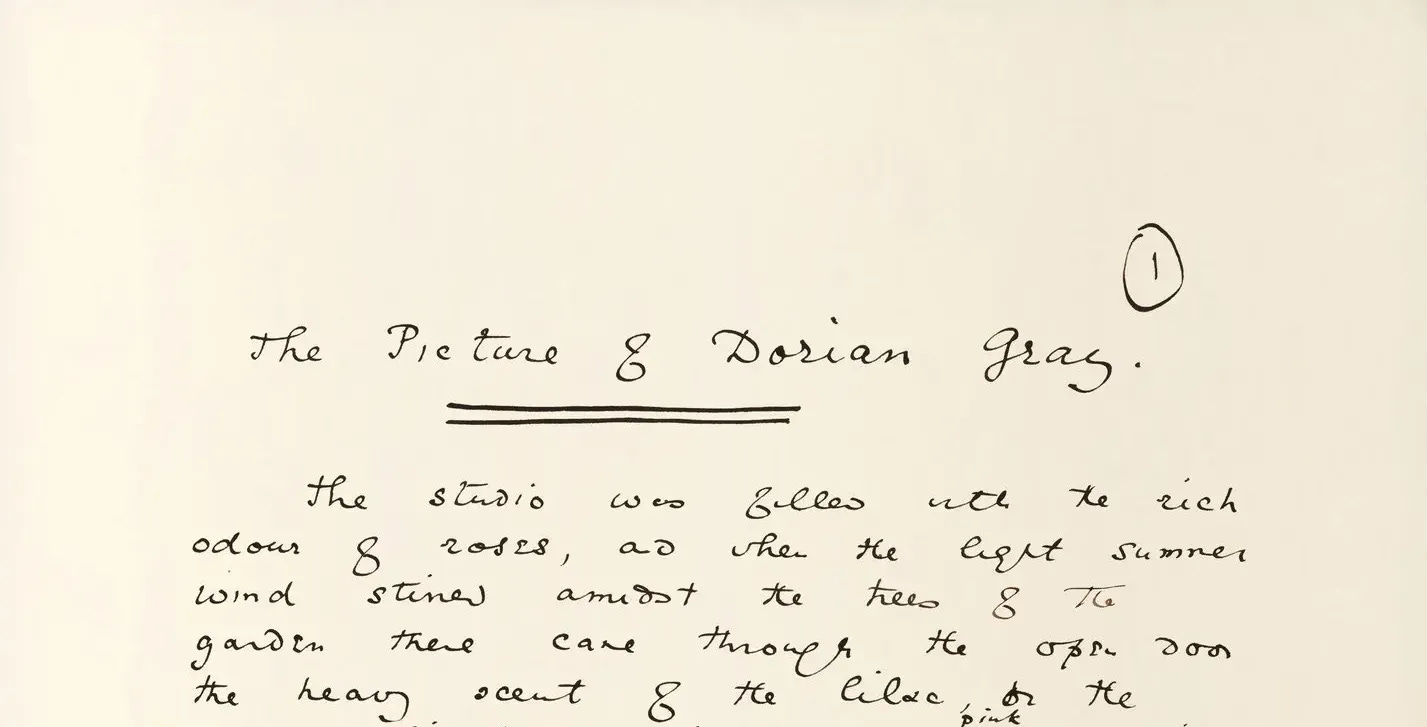 1
The Picture of Dorian Gray.
The studio was filled with the rich
odour of roses, and when the light summer
wind stirred amidst the trees of the
garden there came through the open door
the heavy scent of the lilac, or the
pink